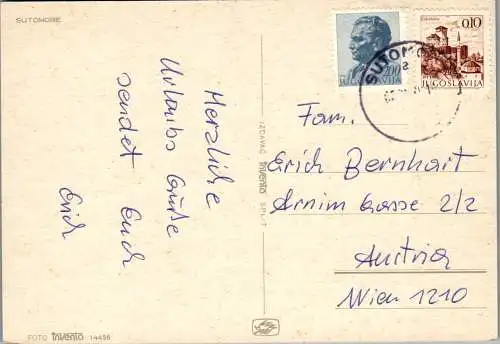 SUTOMORE
Herzliche
Urlaubs Grüße
sendet Euch
Erich
FOTO invento 14456
IZDAVAČ invento SPLIT
JUGOSLAVIJA
0,10
JUGOSLAVIJA
SUTOMO
Fam.
Erich Bernhart
Arnim Gasse 2/2
Austria
Wien 1210